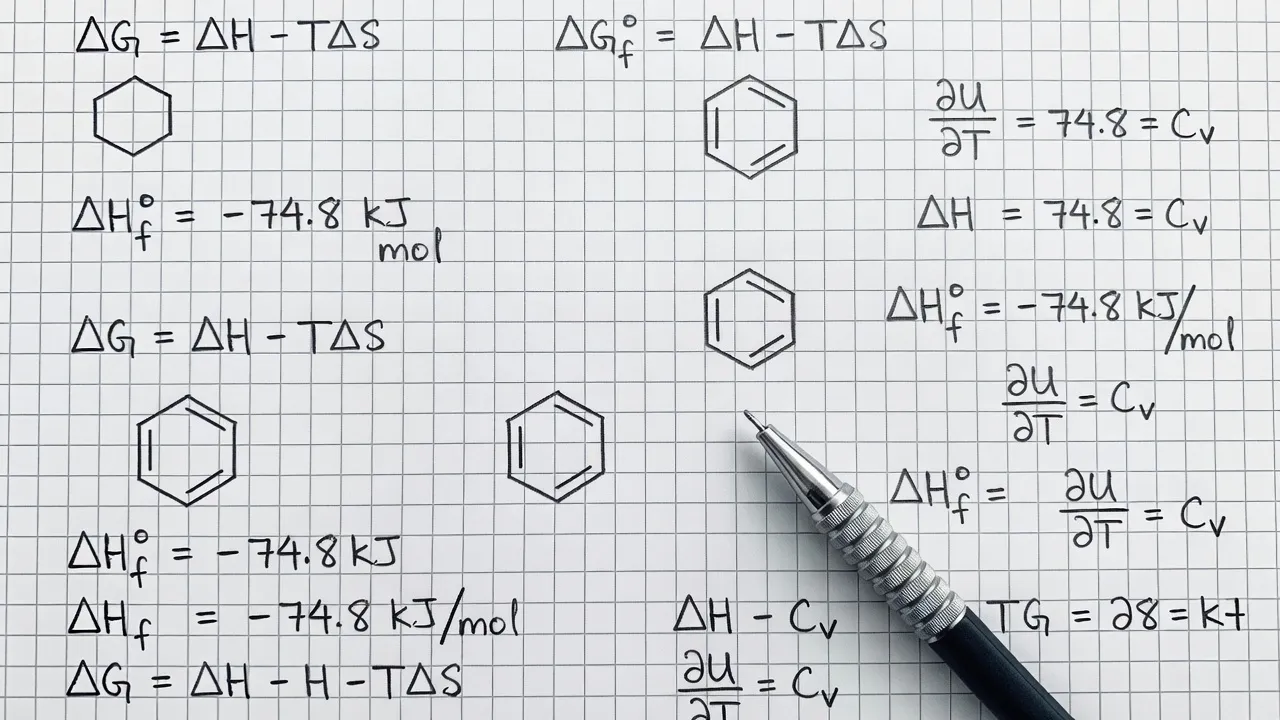 ΔG = ΔH - TΔS
ΔG°f = ΔH - TΔS
∂U/∂T = 74.8 = Cv
ΔH°f = -74.8 kJ
mol
ΔH = 74.8 = Cv
ΔH°f = -74.8 kJ/mol
ΔG = ΔH - TΔS
∂U/∂T = Cv
ΔH°f = ∂U/∂T = Cv
ΔH°f = -74.8 kJ
ΔHf = -74.8 kJ/mol
ΔH - Cv
TG = ∂8 = kt
ΔG = ΔH - H - TΔS
∂U/∂T = Cv